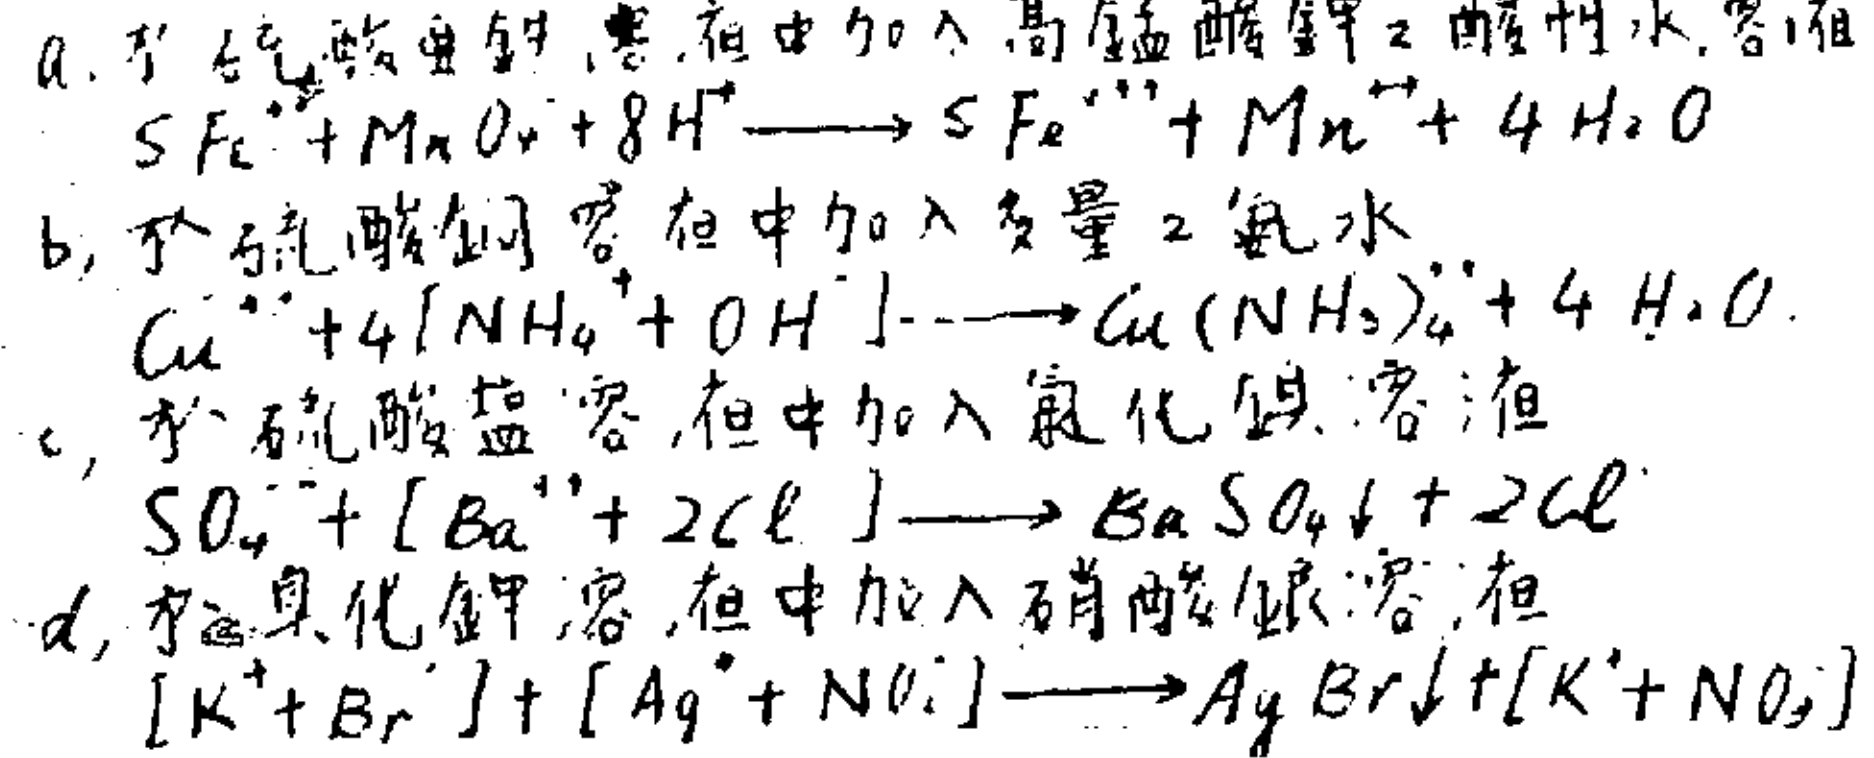 a. 于硫酸亚鉄溶液中加入高錳酸鉀之酸性水溶液
5Fe⁺⁺ + MnO₄⁻ + 8H⁺ ⟶ 5Fe⁺⁺⁺ + Mn⁺⁺ + 4H₂O
b, 于硫酸銅溶液中加入多量之氨水
Cu⁺⁺ + 4[NH₄⁺ + OH⁻] ⟶ Cu(NH₃)₄⁺⁺ + 4H₂O.
c, 于硫酸盐溶液中加入氯化鋇溶液
SO₄⁻⁻ + [Ba⁺⁺ + 2Cl⁻] ⟶ BaSO₄↓ + 2Cl⁻
d, 于臭化鉀溶液中加入硝酸銀溶液
[K⁺ + Br⁻] + [Ag⁺ + NO₃⁻] ⟶ AgBr↓ + [K⁺ + NO₃⁻]